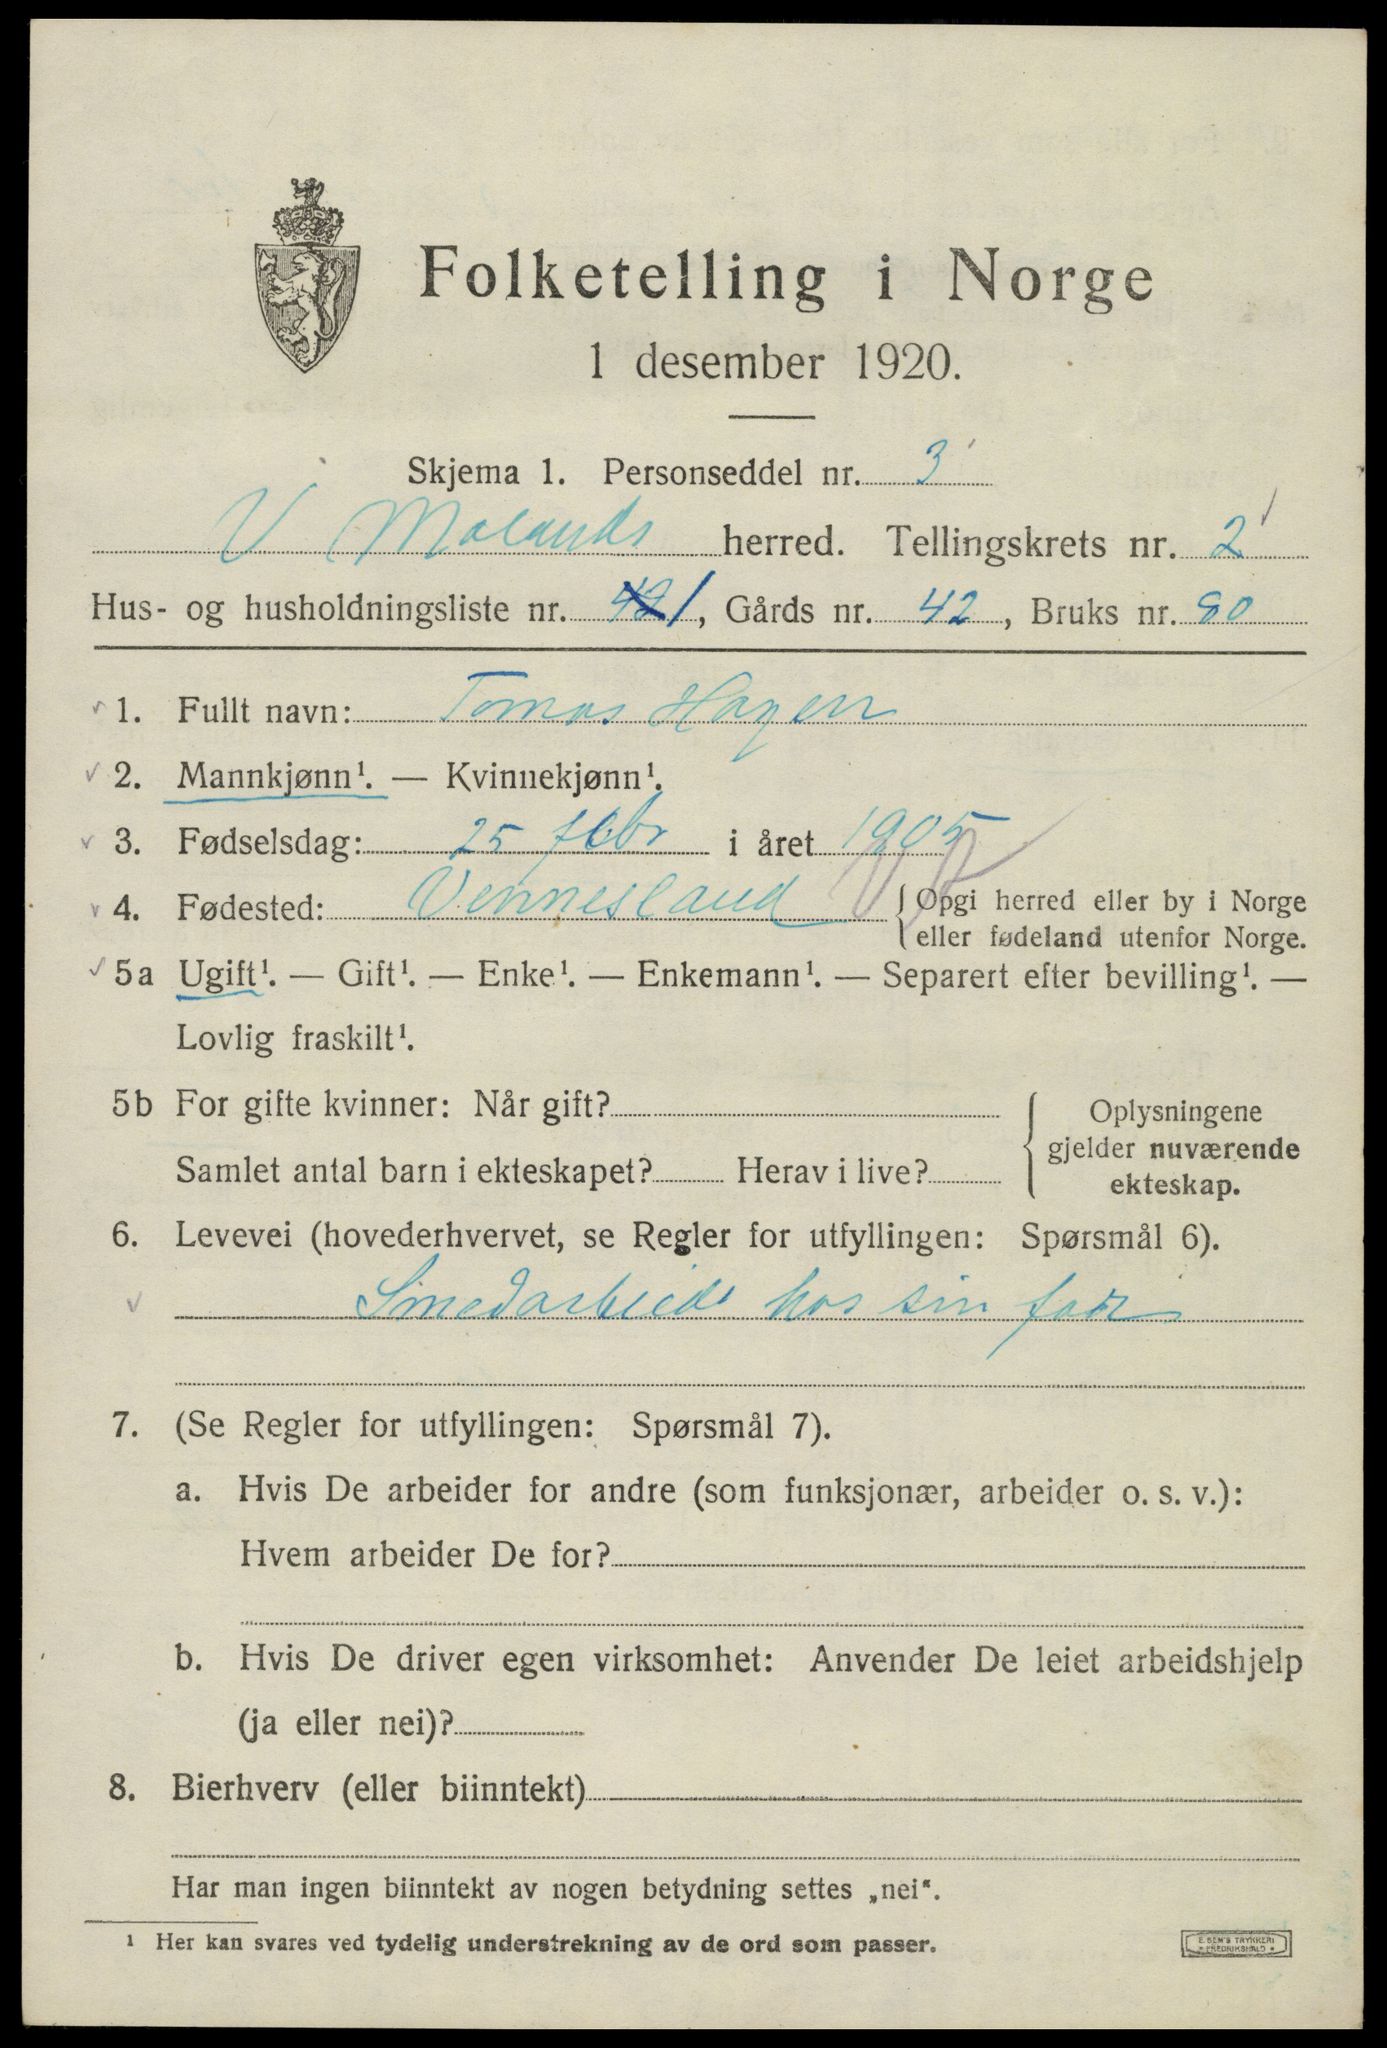 Folketelling i Norge
1 desember 1920.
Skjema 1. Personseddel nr. 3
V Molands herred. Tellingskrets nr. 2
Hus- og husholdningsliste nr. 1, Gårds nr. 42, Bruks nr. 80
1. Fullt navn: Tomas Hagen
2. Mannkjønn¹. — Kvinnekjønn¹.
3. Fødselsdag: 25 febr i året 1905
4. Fødested: Vennesland {Opgi herred eller by i Norge
eller fødeland utenfor Norge.
5a Ugift¹. — Gift¹. — Enke¹. — Enkemann¹. — Separert efter bevilling¹. —
Lovlig fraskilt¹.
5b For gifte kvinner: Når gift?
Samlet antal barn i ekteskapet? Herav i live?
Oplysningene
gjelder nuværende
ekteskap.
6. Levevei (hovederhvervet, se Regler for utfyllingen: Spørsmål 6).
Smedarbeide hos sin far
7. (Se Regler for utfyllingen: Spørsmål 7).
a. Hvis De arbeider for andre (som funksjonær, arbeider o. s. v.):
Hvem arbeider De for?
b. Hvis De driver egen virksomhet: Anvender De leiet arbeidshjelp
(ja eller nei)?
8. Bierhverv (eller biinntekt)
Har man ingen biinntekt av nogen betydning settes „nei“.
¹ Her kan svares ved tydelig understrekning av de ord som passer.
E. SEM'S TRYKKERI
* FREDRIKSHALD *